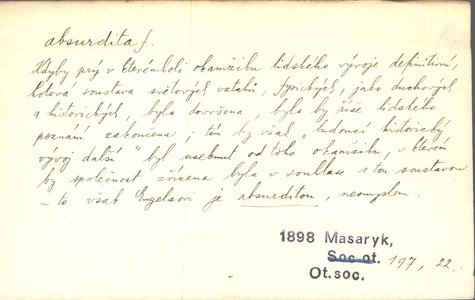 absurdita f.
Kdyby prý v kterémkoli okamžiku lidského vývoje definitivní,
hotová soustava světových vztahů, fysických, jako duchových
a historických, byla dovršena, byla by říše lidského
poznání zakončena; tím by však "budoucí historický
vývoj další" byl useknut od toho okamžiku, v kterém
by společnost zřízena byla v souhlasu s tou soustavou
– to však Engelsovi je absurditou, nesmyslem.
1898 Masaryk,
Soc ot. 197, 22.
Ot.soc.